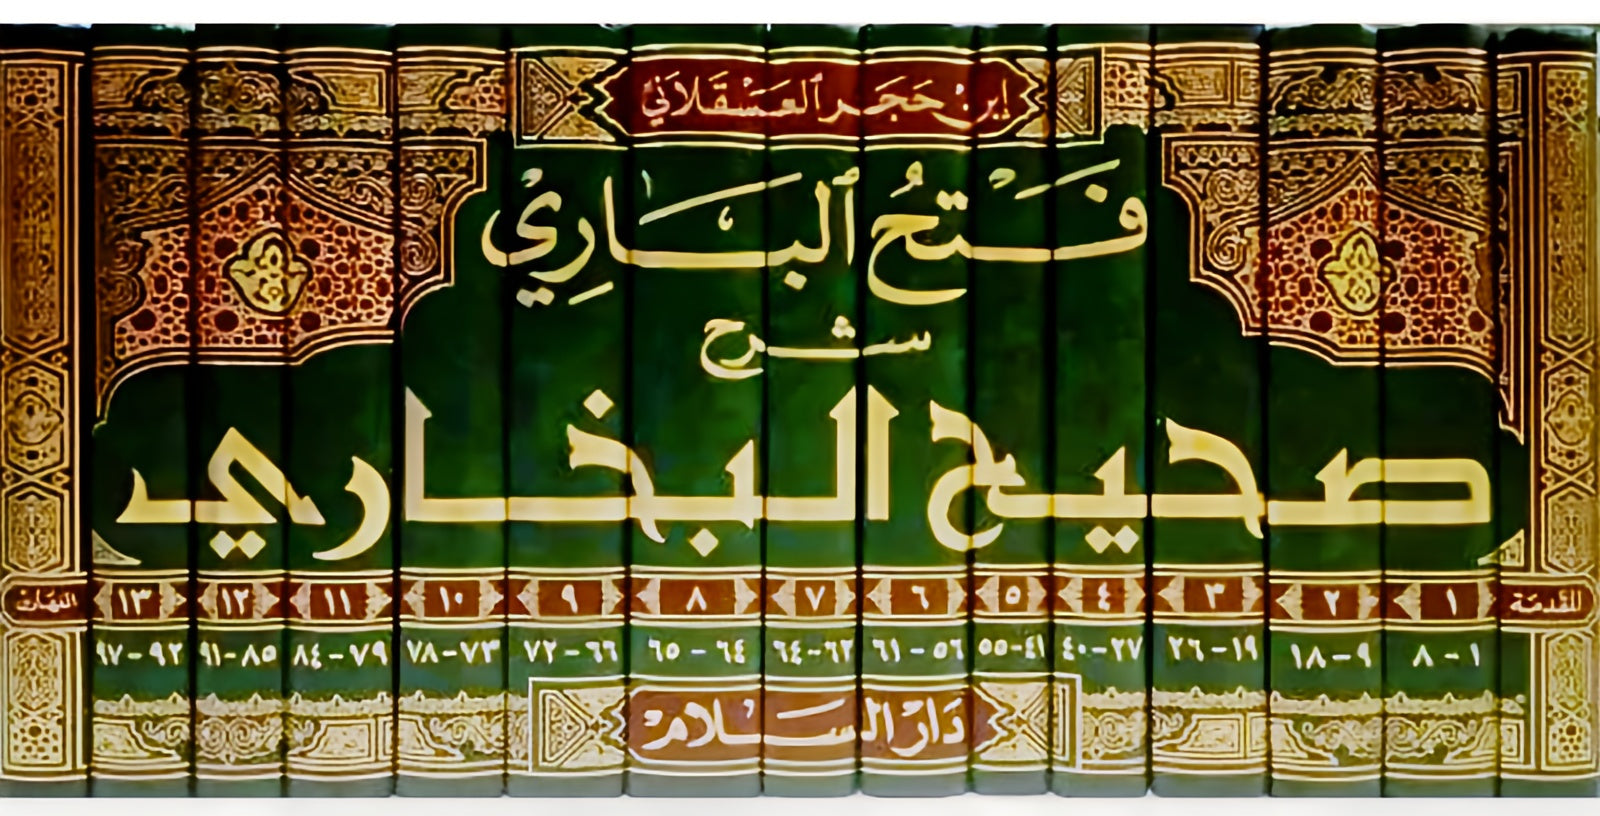 إبن حَجَر ٱلعَسْقَلاَني
فَتْحُ ٱلبَارِيْ
شرح
صحيح البخاري
المقَدمَة ١ ٢ ٣ ٤ ٥ ٦ ٧ ٨ ٩ ١٠ ١١ ١٢ ١٣
١ - ٨ ٩ - ١٨ ١٩ - ٢٦ ٢٧ - ٤٠ ٤١ - ٥٥ ٥٦ - ٦١ ٦٢ - ٦٤ ٦٤ - ٦٥ ٦٦ - ٧٢ ٧٣ - ٧٨ ٧٩ - ٨٤ ٨٥ - ٩١ ٩٢ - ٩٧
دَارْ السَّلامْ